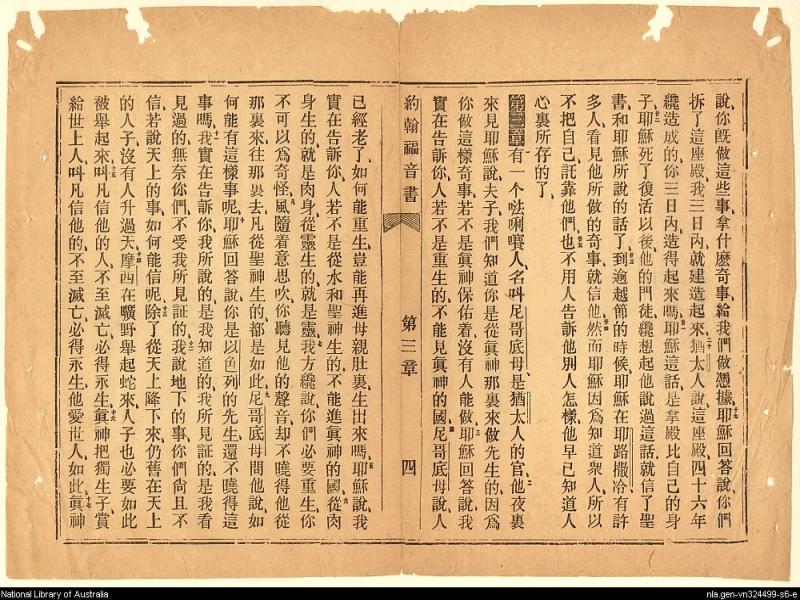 說、你旣做這些事、拿什麽奇事、給我們做憑據、耶穌回答說、你們
拆了這座殿、我三日內、就建造起來、猶太人說、這座殿、四十六年
纔造成的、你三日內、造得起來嗎、耶穌這話、是拿殿比自己的身
子、耶穌死了復活以後、他的門徒、纔想起他說過這話、就信了聖
書、和耶穌所說的話了、到逾越節的時候、耶穌在耶路撒冷、有許
多人、看見他所做的奇事、就信他、然而耶穌因爲知道衆人、所以
不把自己託靠他們、也不用人告訴他別人怎樣、他早已知道人
心裏所存的了、
第三章有一个𠵽唎嚷人、名叫尼哥底母、是猶太人的官、他夜裏
來見耶穌說、夫子、我們知道你是從眞神那裏來做先生的、因爲
你做這樣奇事、若不是眞神保佑着、沒有人能做、耶穌回答說、我
實在告訴你、人若不是重生的、不能見眞神的國、尼哥底母說、人
約翰福音書
第三章
四
已經老了、如何能重生、豈能再進母親肚裏、生出來嗎、耶穌說、我
實在告訴你、人若不是從水和聖神生的、不能進眞神的國、從肉
身生的、就是肉身、從靈生的、就是靈、我方纔說、你們必要重生、你
不可以爲奇怪、風隨着意思吹、你聽見他的聲音、却不曉得他從
那裏來、往那裏去、凡從聖神生的、都是如此、尼哥底母問他說、如
何能有這樣事呢、耶穌回答說、你是以色列的先生、還不曉得這
事嗎、我實在告訴你、我所說的、是我知道的、我所見証的、是我看
見過的、無奈你們、不受我所見証的、我說地下的事、你們尙且不
信、若說天上的事、如何能信呢、除了從天上降下來、仍舊在天上
的人子、沒有人升過天、摩西在曠野舉起蛇來、人子也必要如此
被舉起來、叫凡信他的人、不至滅亡、必得永生、眞神把獨生子賞
給世上人、叫凡信他的、不至滅亡、必得永生、他愛世人如此、眞神
National Library of Australia
nla.gen-vn324499-s6-e